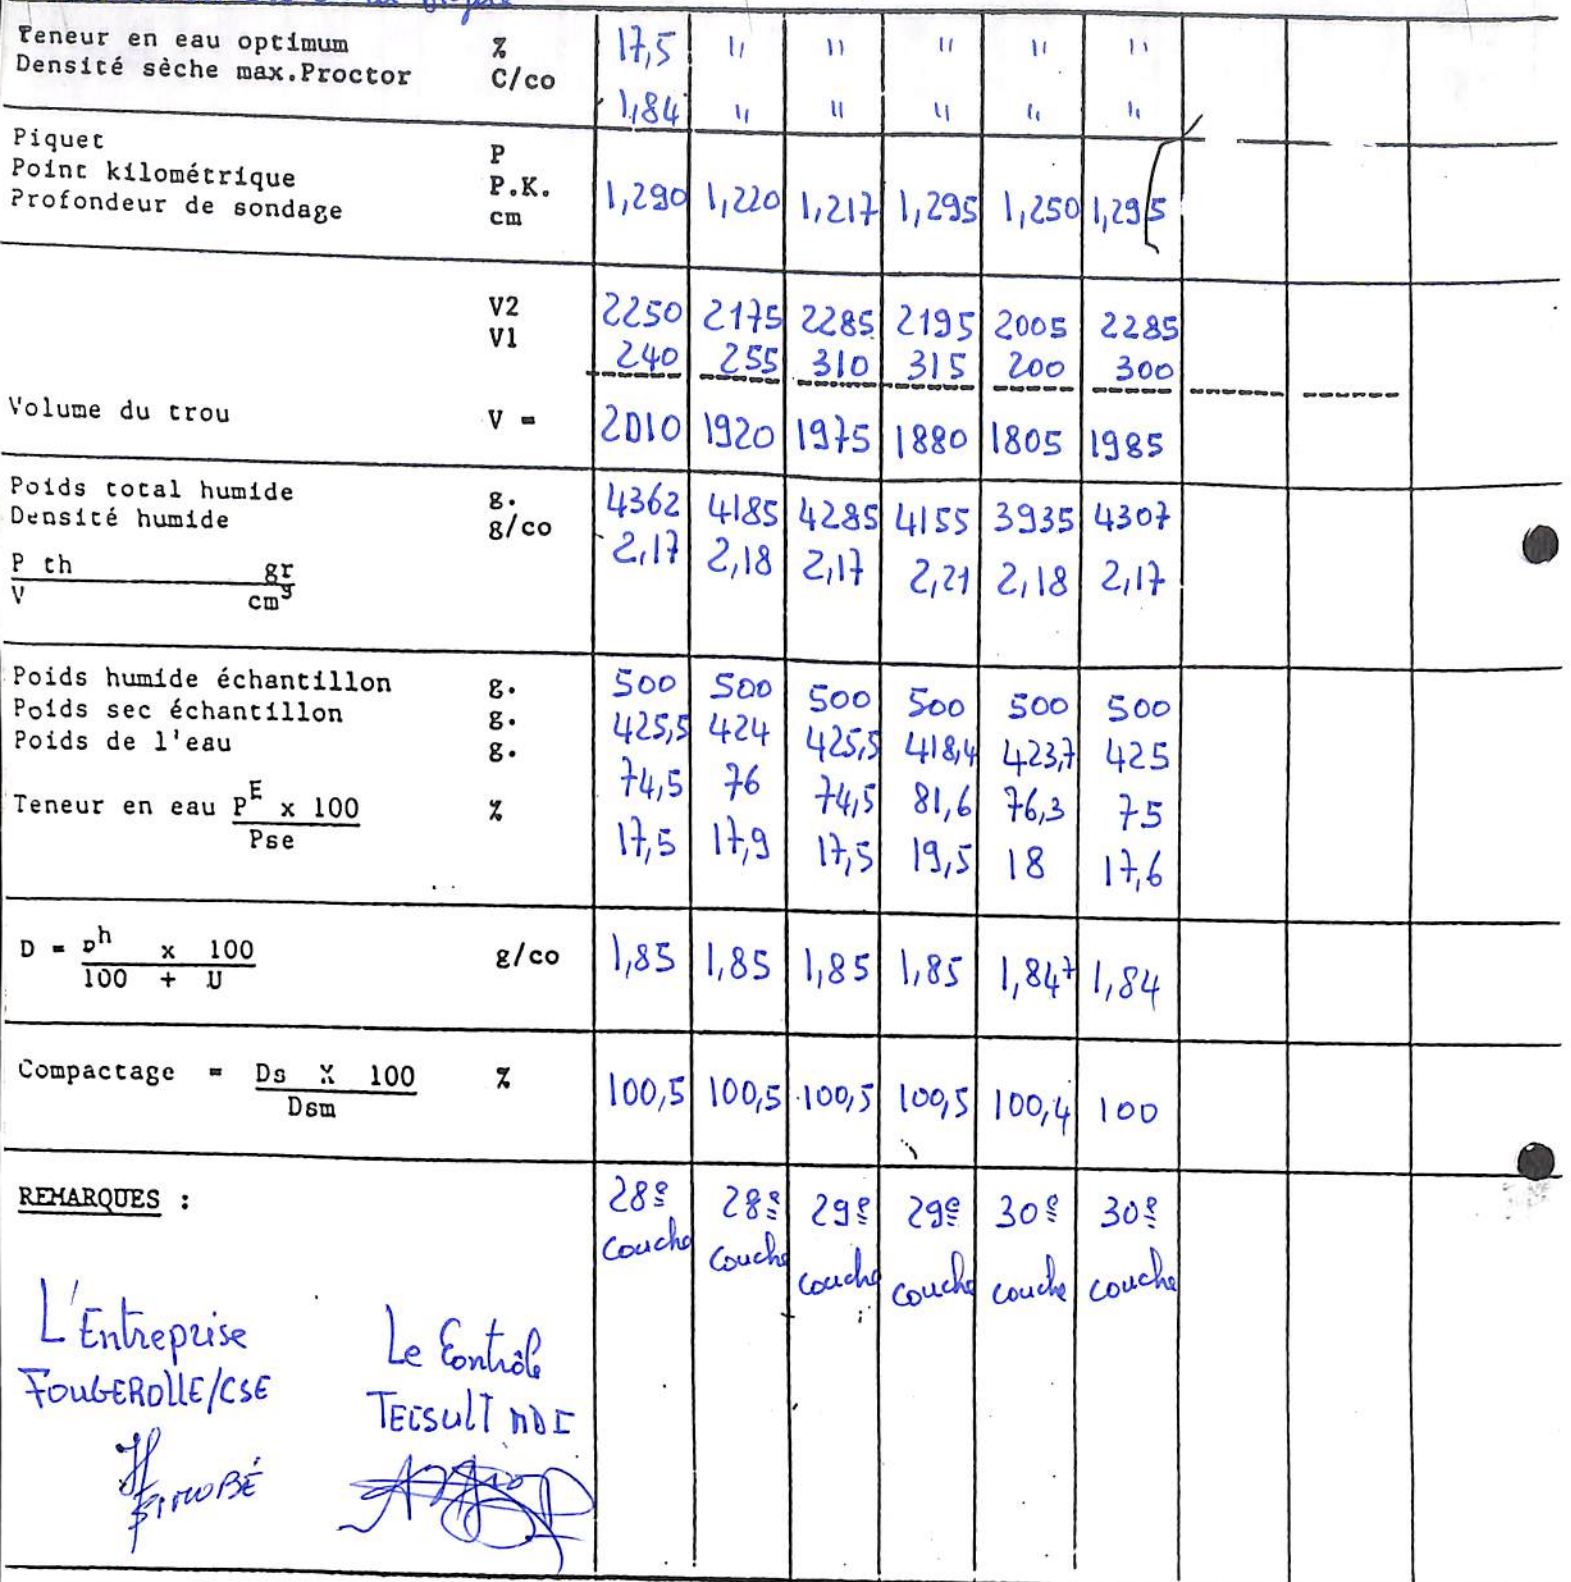 Teneur en eau optimum % 17,5 " " " " "
Densité sèche max.Proctor C/co 1,84 " " " " "
Piquet P
Point kilométrique P.K. 1,290 1,220 1,217 1,295 1,250 1,295
Profondeur de sondage cm
V2 2250 2175 2285 2195 2005 2285
V1 240 255 310 315 200 300
Volume du trou V = 2010 1920 1975 1880 1805 1985
Poids total humide g. 4362 4185 4285 4155 3935 4307
Densité humide g/co 2,17 2,18 2,17 2,21 2,18 2,17
P th gr
V cm3
Poids humide échantillon g. 500 500 500 500 500 500
Poids sec échantillon g. 425,5 424 425,5 418,4 423,7 425
Poids de l'eau g. 74,5 76 74,5 81,6 76,3 75
Teneur en eau PE x 100 % 17,5 17,9 17,5 19,5 18 17,6
Pse
D = Dh x 100 g/co 1,85 1,85 1,85 1,85 1,847 1,84
100 + U
Compactage = Ds X 100 % 100,5 100,5 100,5 100,5 100,4 100
Dsm
REMARQUES : 28e 28e 29e 29e 30e 30e
couche couche couche couche couche couche
L'Entreprise Le Contrôle
FOUGEROLLE/CSE TECSULT